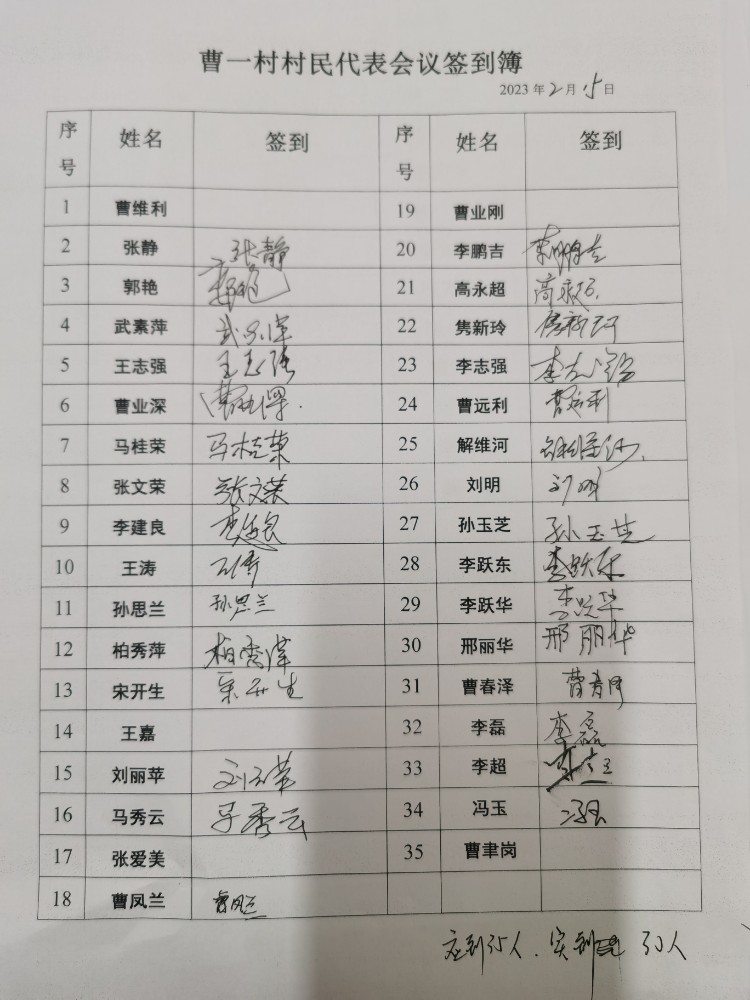 曹一村村民代表会议签到簿
2023年2月15日
序号 姓名 签到 序号 姓名 签到
1 曹维利 19 曹业刚
2 张静 张静 20 李鹏吉 李鹏吉
3 郭艳 郭艳 21 高永超 高永超
4 武素萍 武素萍 22 隽新玲 隽新玲
5 王志强 王志强 23 李志强 李志强
6 曹业深 曹业深 24 曹远利 曹远利
7 马桂荣 马桂荣 25 解维河 解维河
8 张文荣 张文荣 26 刘明 刘明
9 李建良 李建良 27 孙玉芝 孙玉芝
10 王涛 王涛 28 李跃东 李跃东
11 孙思兰 孙思兰 29 李跃华 李跃华
12 柏秀萍 柏秀萍 30 邢丽华 邢丽华
13 宋开生 宋开生 31 曹春泽
14 王嘉 32 李磊 李磊
15 刘丽苹 33 李超 李超
16 马秀云 马秀云 34 冯玉 冯玉
17 张爱美 35 曹聿岗
18 曹凤兰 曹凤兰
应到35人.实到30人